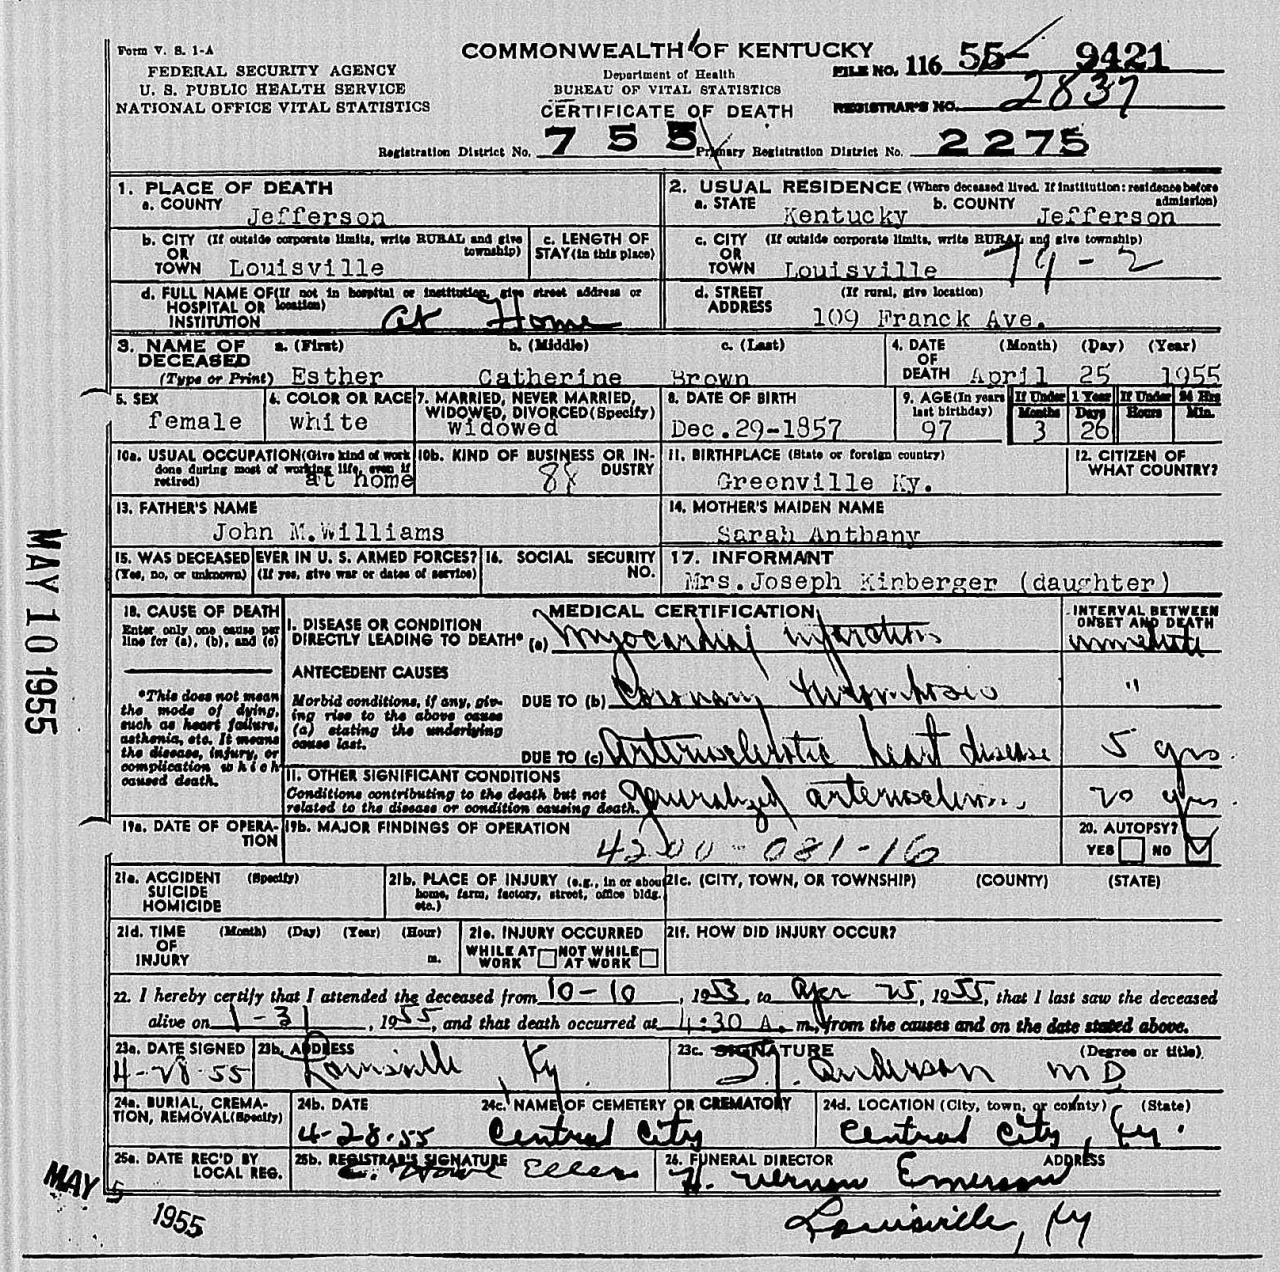 Form V. S. 1-A
COMMONWEALTH OF KENTUCKY
FILE NO. 116 55- 9421
FEDERAL SECURITY AGENCY
Department of Health
U. S. PUBLIC HEALTH SERVICE
BUREAU OF VITAL STATISTICS
NATIONAL OFFICE VITAL STATISTICS
CERTIFICATE OF DEATH
REGISTRAR'S NO. 2837
Registration District No. 755 Primary Registration District No. 2275
1. PLACE OF DEATH
a. COUNTY Jefferson
2. USUAL RESIDENCE (Where deceased lived. If institution: residence before admission)
a. STATE Kentucky b. COUNTY Jefferson
b. CITY (If outside corporate limits, write RURAL and give township)
OR
TOWN Louisville
c. LENGTH OF STAY (in this place)
c. CITY (If outside corporate limits, write RURAL and give township)
OR
TOWN Louisville
d. FULL NAME OF (If not in hospital or institution, give street address or location)
HOSPITAL OR
INSTITUTION at Home
d. STREET (If rural, give location)
ADDRESS 109 Franck Ave.
3. NAME OF DECEASED a. (First) b. (Middle) c. (Last)
(Type or Print) Esther Catherine Brown
4. DATE OF DEATH (Month) (Day) (Year)
April 25 1955
5. SEX
female
6. COLOR OR RACE
white
7. MARRIED, NEVER MARRIED, WIDOWED, DIVORCED (Specify)
widowed
8. DATE OF BIRTH
Dec. 29-1857
9. AGE (In years last birthday)
97
If Under 1 Year
Months Days
3 26
If Under 24 Hrs
Hours Min.
10a. USUAL OCCUPATION (Give kind of work done during most of working life, even if retired)
at home
10b. KIND OF BUSINESS OR INDUSTRY
88
11. BIRTHPLACE (State or foreign country)
Greenville Ky.
12. CITIZEN OF WHAT COUNTRY?
13. FATHER'S NAME
John M. Williams
14. MOTHER'S MAIDEN NAME
Sarah Anthany
15. WAS DECEASED EVER IN U. S. ARMED FORCES?
(Yes, no, or unknown) (If yes, give war or dates of service)
16. SOCIAL SECURITY NO.
17. INFORMANT
Mrs. Joseph Kinberger (daughter)
18. CAUSE OF DEATH
Enter only one cause per line for (a), (b), and (c)
*This does not mean the mode of dying, such as heart failure, asthenia, etc. It means the disease, injury, or complication which caused death.
MEDICAL CERTIFICATION
INTERVAL BETWEEN ONSET AND DEATH
I. DISEASE OR CONDITION DIRECTLY LEADING TO DEATH* (a) Myocardial infarction immediate
ANTECEDENT CAUSES
Morbid conditions, if any, giving rise to the above cause (a) stating the underlying cause last.
DUE TO (b) Coronary thrombosis "
DUE TO (c) Arteriosclerotic heart disease 5 yrs
II. OTHER SIGNIFICANT CONDITIONS
Conditions contributing to the death but not related to the disease or condition causing death. generalized arteriosclerosis 20 yrs.
19a. DATE OF OPERATION
19b. MAJOR FINDINGS OF OPERATION
4200-081-16
20. AUTOPSY?
YES NO
21a. ACCIDENT (Specify)
SUICIDE
HOMICIDE
21b. PLACE OF INJURY (e.g., in or about home, farm, factory, street, office bldg. etc.)
21c. (CITY, TOWN, OR TOWNSHIP) (COUNTY) (STATE)
21d. TIME OF INJURY (Month) (Day) (Year) (Hour) m.
21e. INJURY OCCURRED
WHILE AT WORK NOT WHILE AT WORK
21f. HOW DID INJURY OCCUR?
22. I hereby certify that I attended the deceased from 10-10, 1953, to Apr 25, 1955, that I last saw the deceased
alive on 1-31, 1955, and that death occurred at 4:30 A. m., from the causes and on the date stated above.
23a. DATE SIGNED
4-28-55
23b. ADDRESS
Louisville, Ky.
23c. SIGNATURE (Degree or title)
Anderson MD
24a. BURIAL, CREMATION, REMOVAL (Specify)
24b. DATE
4-28-55
24c. NAME OF CEMETERY OR CREMATORY
Central City
24d. LOCATION (City, town, or county) (State)
Central City, Ky.
25a. DATE REC'D BY LOCAL REG.
MAY 5 1955
25b. REGISTRAR'S SIGNATURE
26. FUNERAL DIRECTOR ADDRESS
H. Vernon Emerson
Louisville, Ky
MAY 10 1955